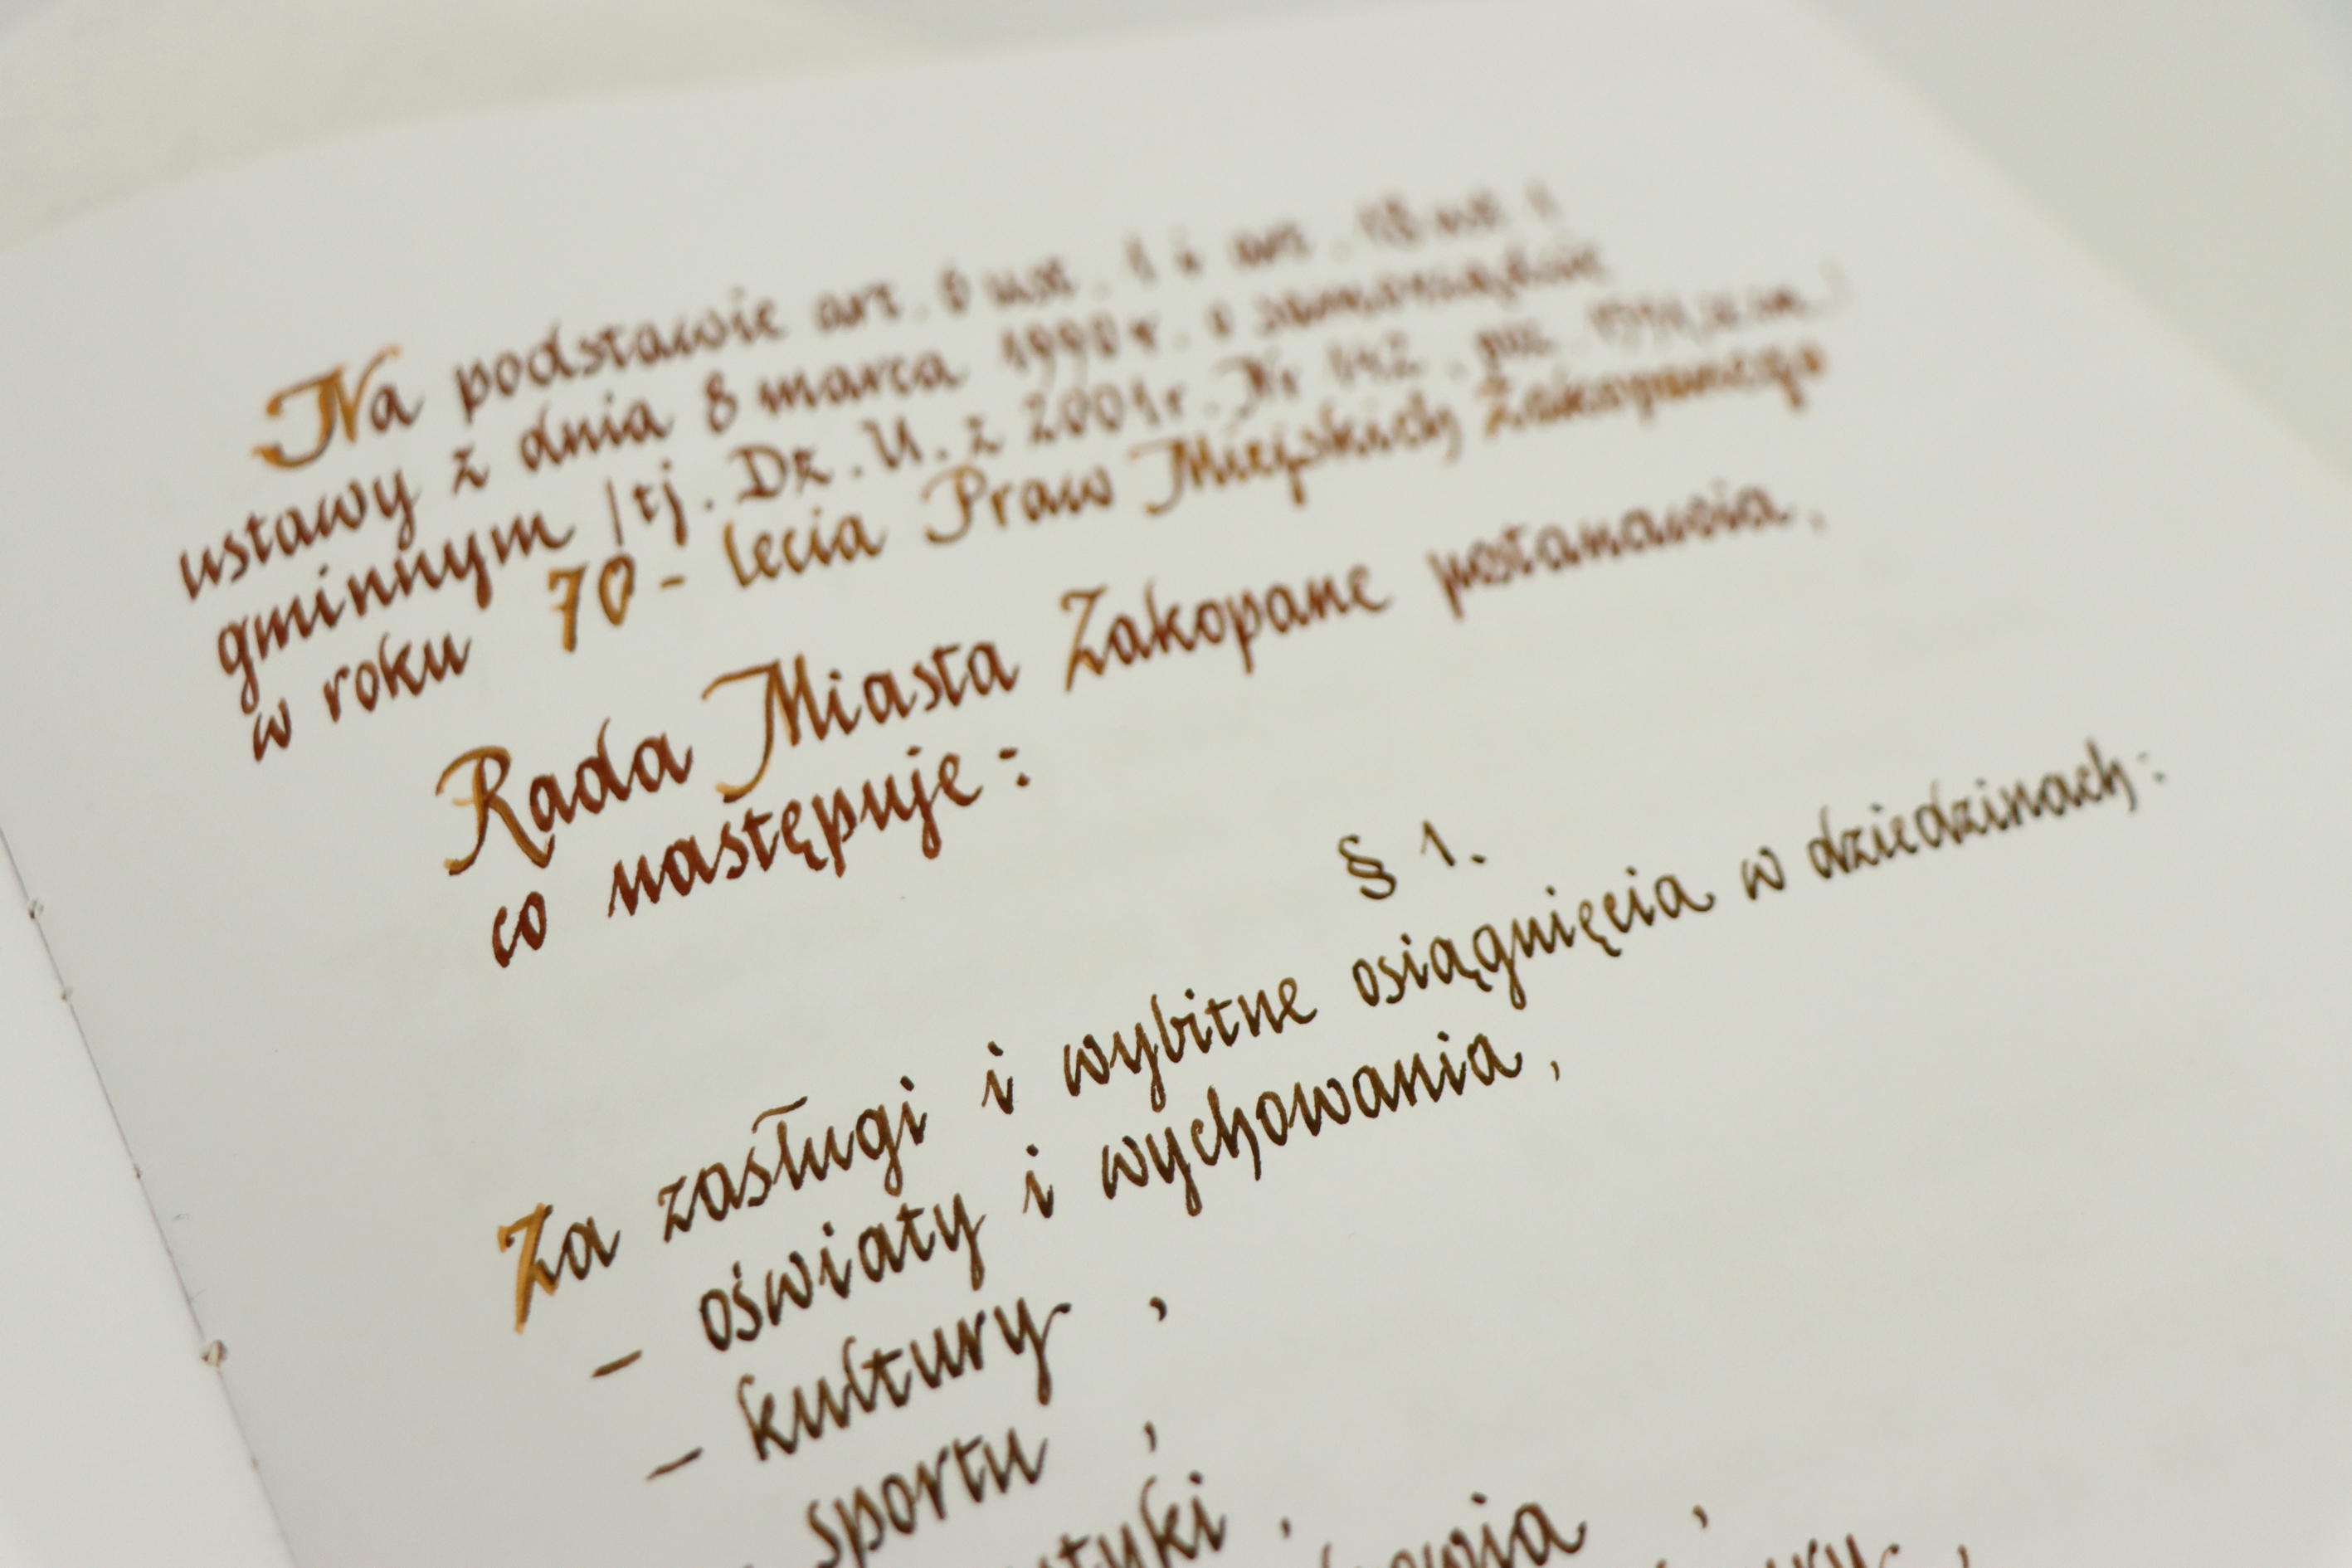 Na podstawie art. 6 ust. 1 i art. 18 ust 1
ustawy z dnia 8 marca 1990 r. o samorządzie
gminnym /tj. Dz. U. z 2001 r. Nr 142, poz. 1591, ze zm./
w roku 70-lecia Praw Miejskich Zakopanego
Rada Miasta Zakopane postanawia,
co następuje:
§ 1.
Za zasługi i wybitne osiągnięcia w dziedzinach:
- oświaty i wychowania,
- kultury,
sportu,